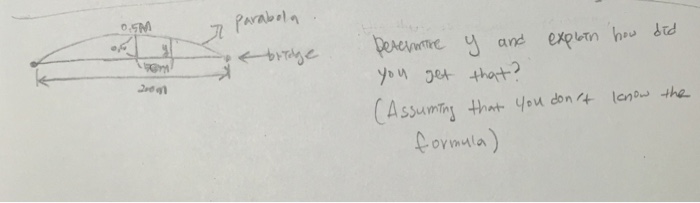 parabola
0.5M
y
bridge
200m
Determine y and explain how did
you get that?
(Assuming that you don't know the
formula)